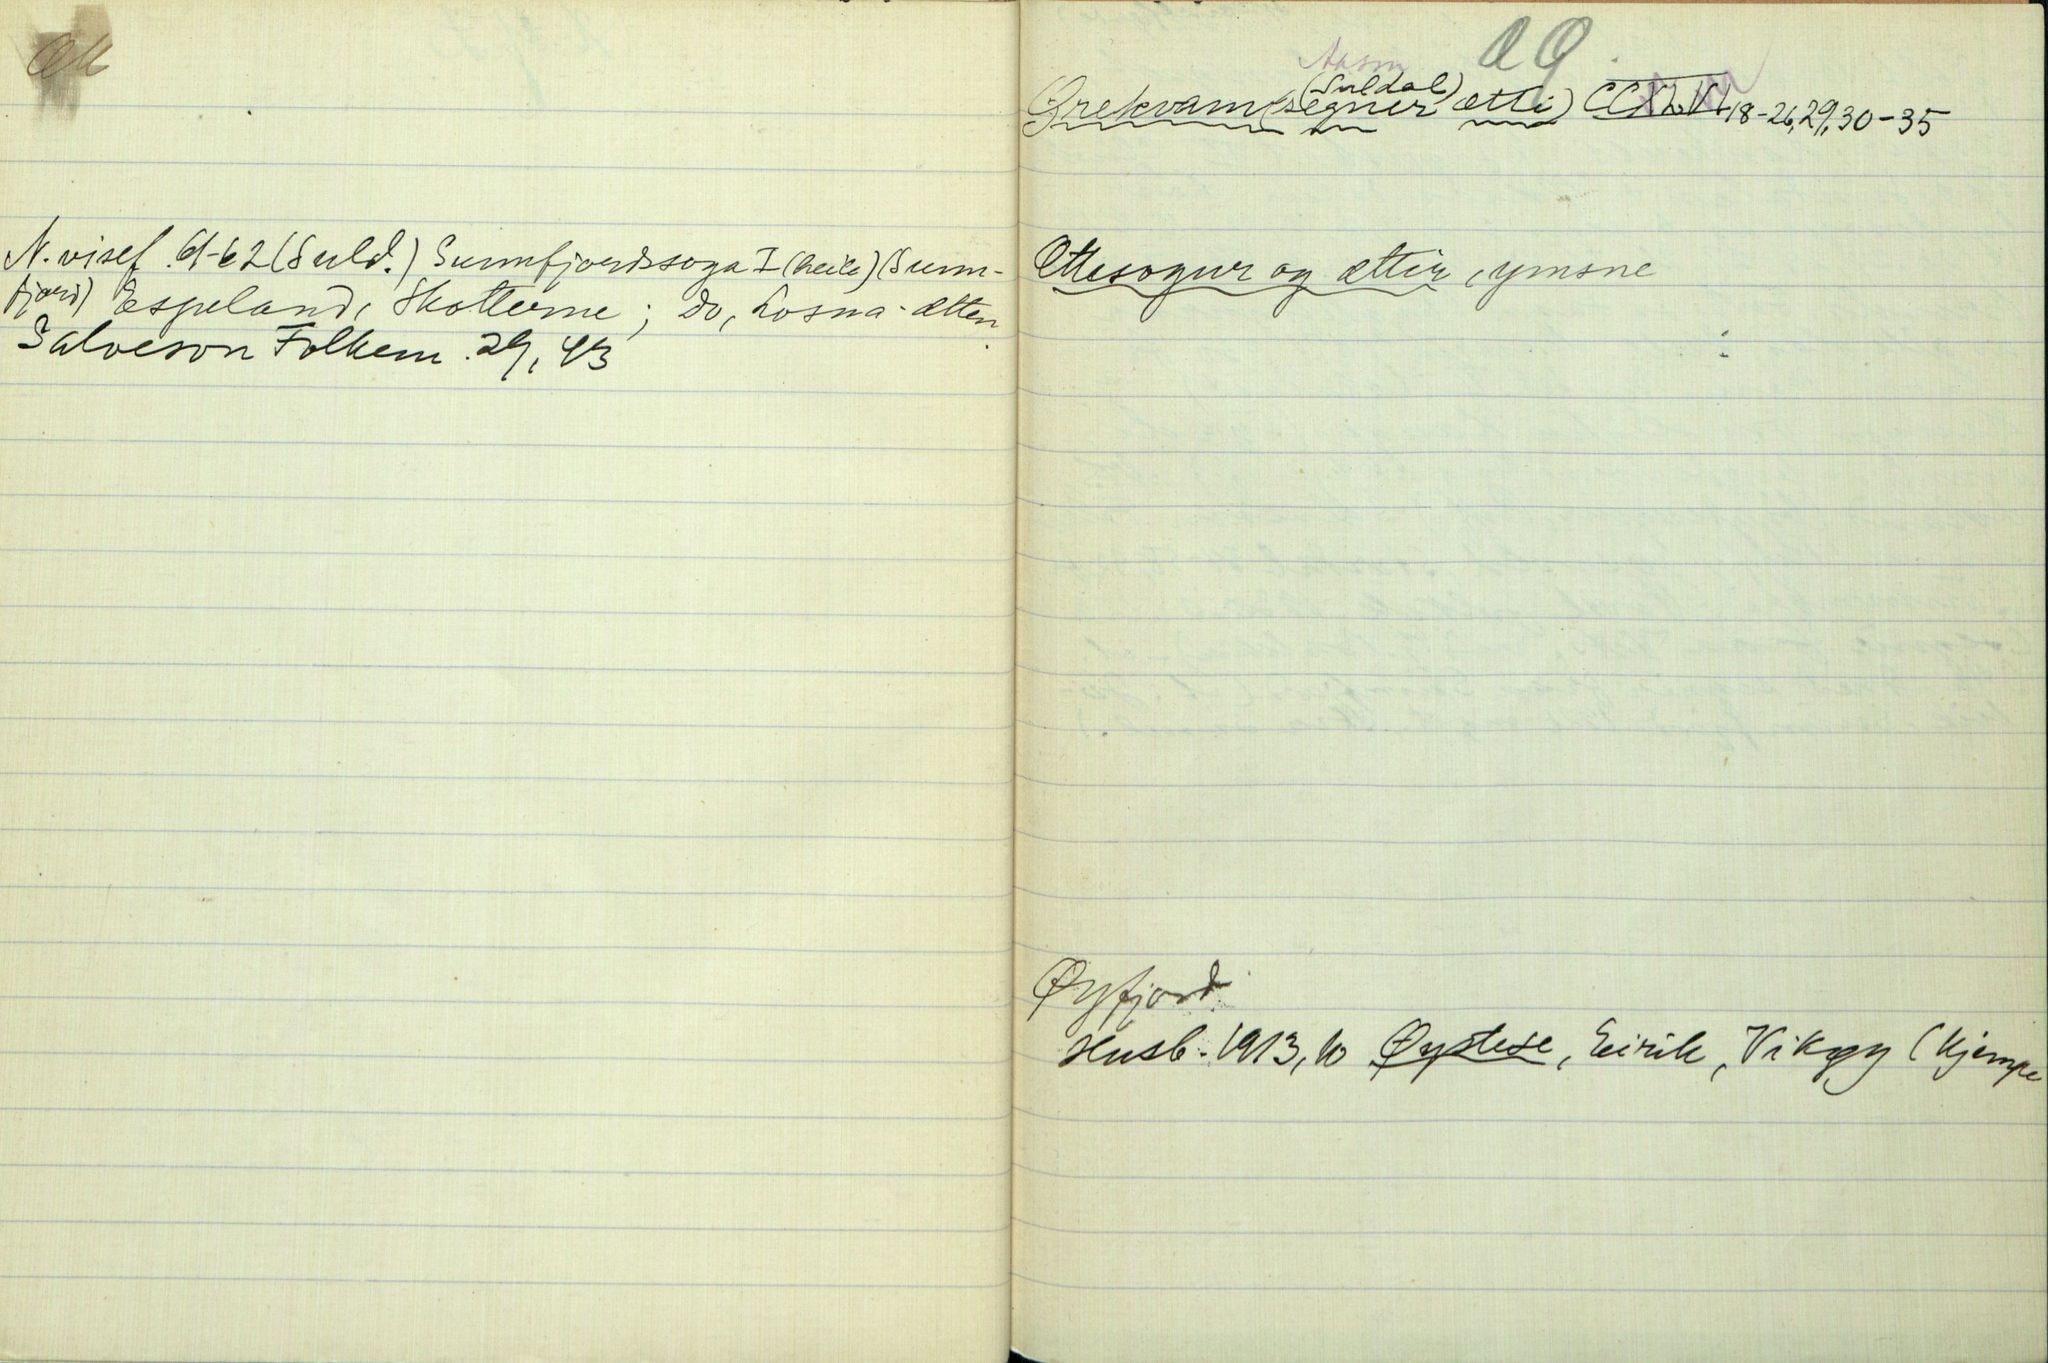 N. visef. 61-62 (Suld.) Sunnfjordssoga I (heile) (Sunn-
fjord) Espeland, Skotterne; Do, Losna-ætten.
Salveson Folkem. 29, 43
Æ Ø.
(Suldal)
Ørekvam (segner ætti) CCXLVI 18-26, 29, 30-35
Ættesogur og ættir, ymsne
Øyfjord
Husb. 1913, 10 Øystese, Eirik, Vikøy (Kjempe